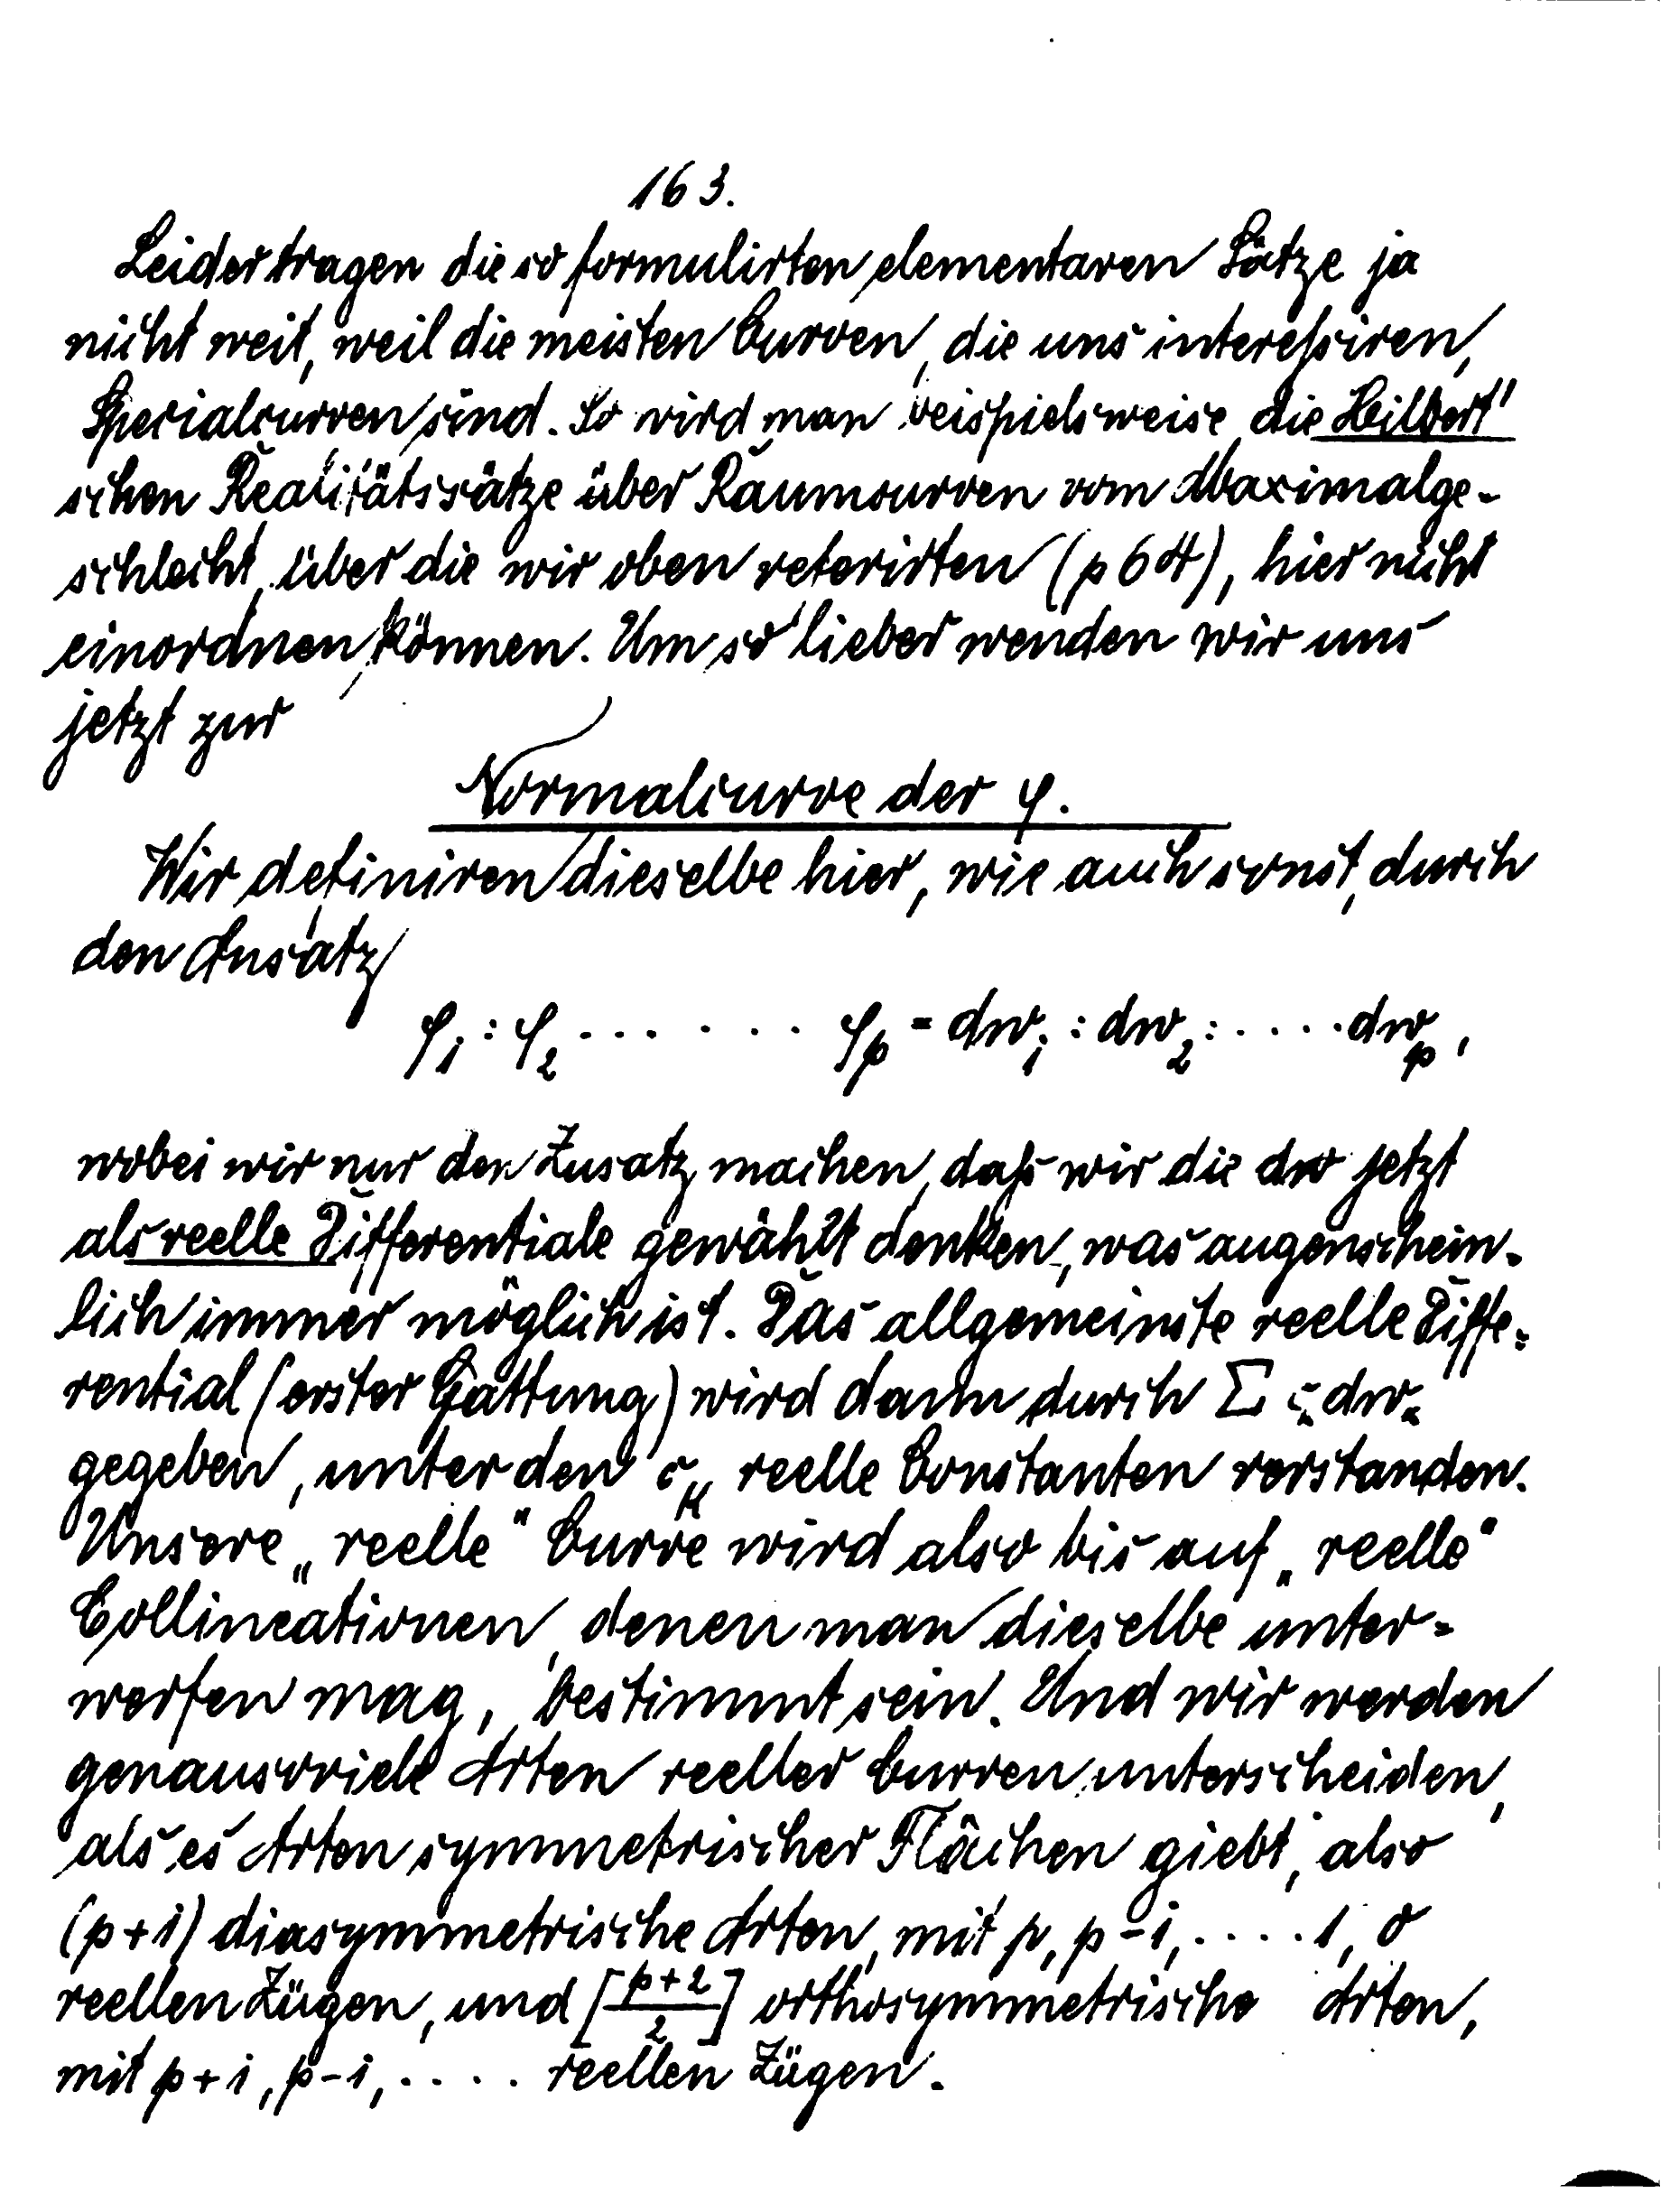 163.
Leider tragen die so formulirten elementaren Sätze ja
nicht weit, weil die meisten Curven, die uns interessiren,
Specialcurven sind. So wird man beispielsweise die Hilbert'
schen Realitätssätze über Raumcurven vom Maximalge-
schlecht, über die wir oben referirten (p 64), hier nicht
einordnen können. Um so lieber wenden wir uns
jetzt zur
Normalcurve der φ.
Wir definiren dieselbe hier, wie auch sonst, durch
den Ansatz
φ₁ : φ₂ ....... φₚ = dw₁ : dw₂ : .... dwₚ,
wobei wir nur den Zusatz machen, daß wir die dw jetzt
als reelle Differentiale gewählt denken, was augenschein-
lich immer möglich ist. Das allgemeinste reelle Diffe-
rential (erster Gattung) wird dann durch Σ cₓ dwₓ
gegeben, unter den cₓ reelle Constanten verstanden.
Unsere „reelle" Curve wird also bis auf „reelle"
Collineationen, denen man dieselbe unter-
werfen mag, bestimmt sein. Und wir werden
genausoviele Arten reeller Curven unterscheiden,
als es Arten symmetrischer Flächen giebt, also
(p+1) diasymmetrische Arten, mit p, p-1, .... 1, 0
reellen Zügen, und [(p+2)/2] orthosymmetrische Arten,
mit p+1, p-1, .... reellen Zügen.